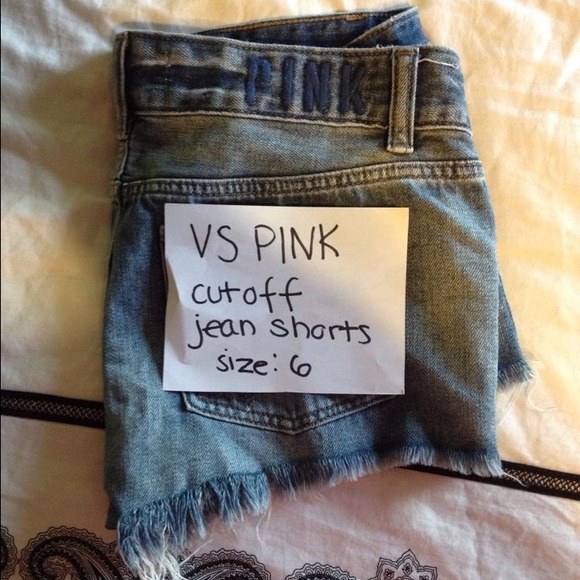 PINK
VS PINK
cutoff
jean shorts
size: 6